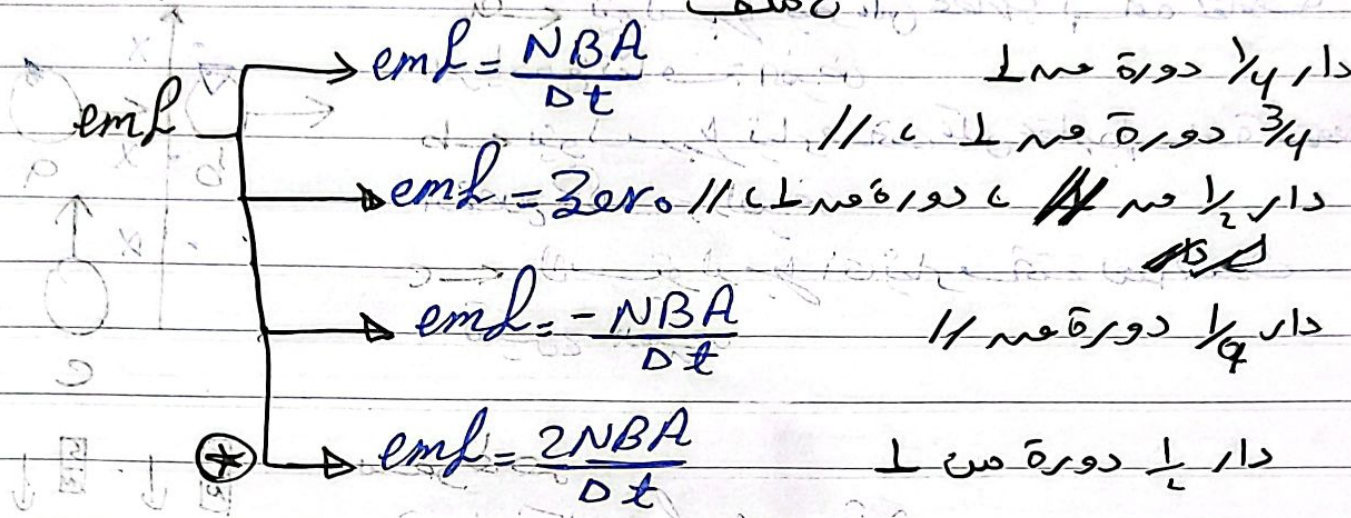 emf
emf = NBA / Δt دار 1/4 دورة من ⊥
3/4 دورة من ⊥ ، //
emf = Zero دار 1/2 من // ، دورة من ⊥ ، //
emf = - NBA / Δt دار 1/4 دورة من //
* emf = 2NBA / Δt دار 1/2 دورة من ⊥